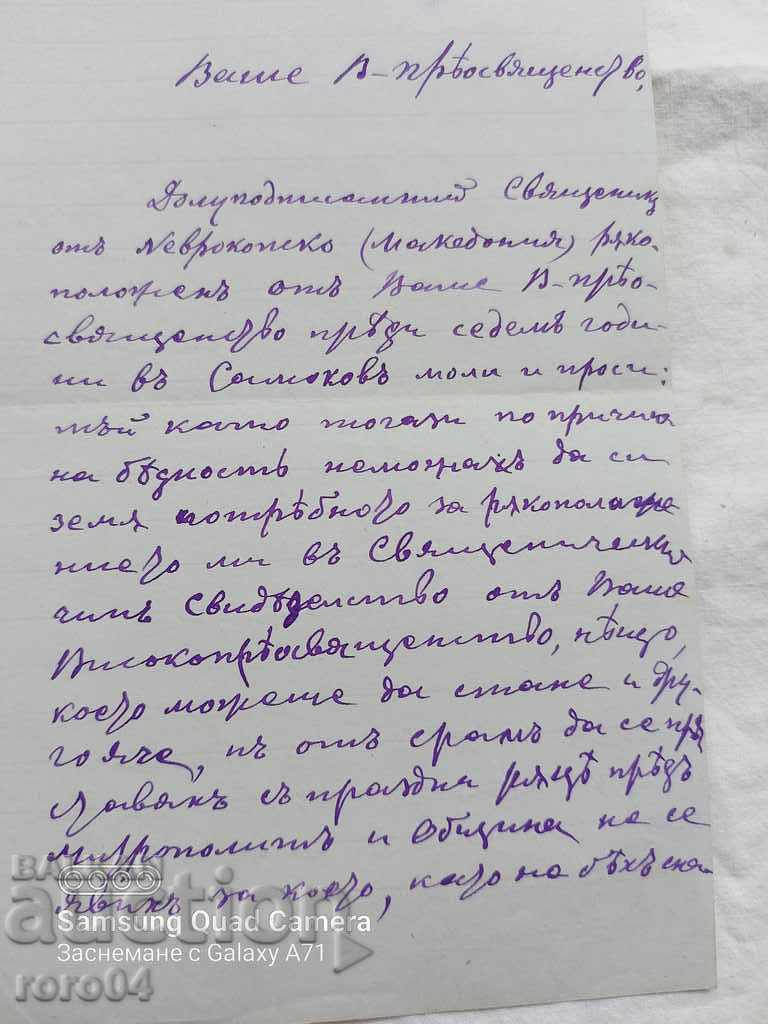 Ваше В-прѣосвященство,
Долуподписаний Священикъ
отъ Неврокопско (Македония) рѫко-
положенъ отъ Ваше В-прѣо-
священство прѣди седемъ годи-
ни въ Самоковъ моли и проси:
тъй като тогази по причина
на бѣдность неможахъ да си
земѫ потрѣбното за
нието ми въ Священически
чинъ Свидѣтелство отъ Ваше
Високопрѣосвященство, нѣщо,
което можеше да стане и дру-
гояче, нъ отъ срамъ да се
ставамъ съ праздни рѫцѣ прѣдъ
Митрополитъ и Община не се
явихъ за което, като на
Samsung Quad Camera
Заснемане с Galaxy A71
roro04